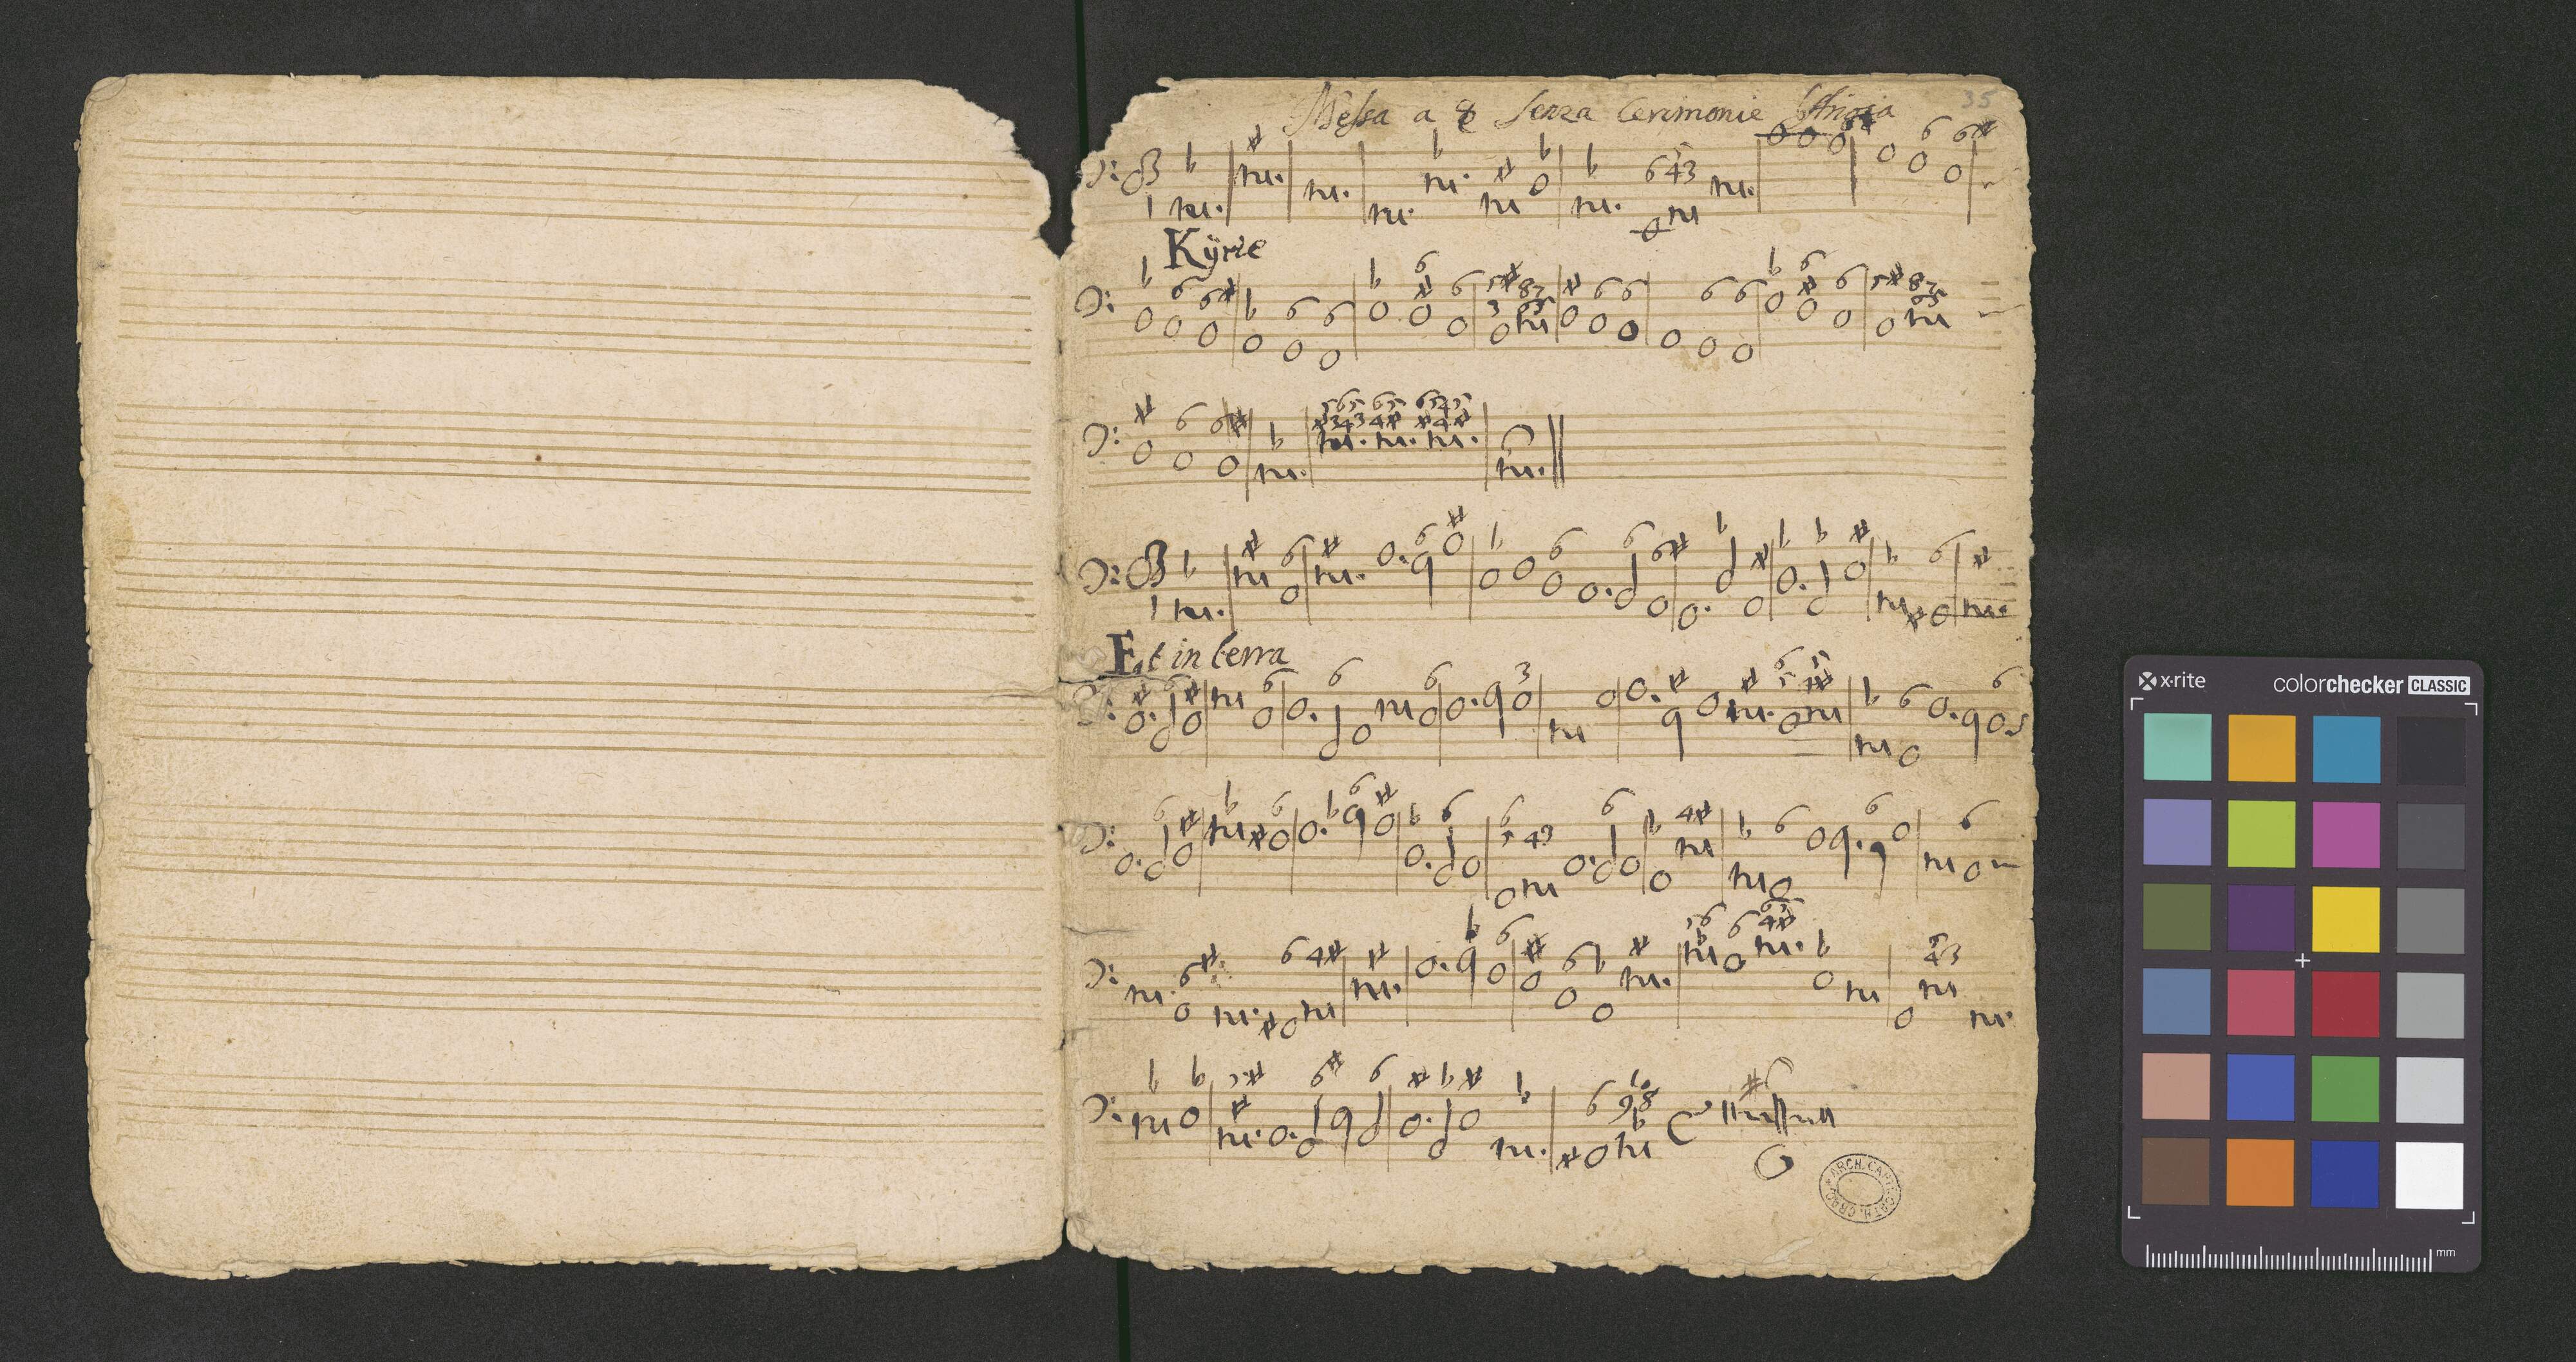 35
Messa a 8 Senza Cerimonie
Kÿrie
Et in terra
ARCH. CAPIT. CATH. CRAC.
x·rite
colorchecker CLASSIC
mm